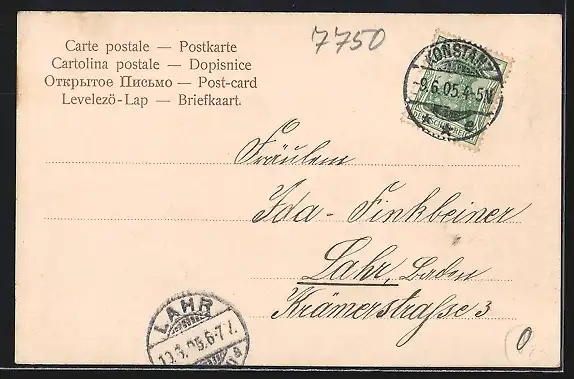 Carte postale — Postkarte
Cartolina postale — Dopisnice
Открытое Письмо — Post-card
Levelező-Lap — Briefkaart.
7750
KONSTANZ
-9.6.05.4-5N.
Fräulein
Ida Finkbeiner
Lahr, Baden
Krämerstraße 3
LAHR
0